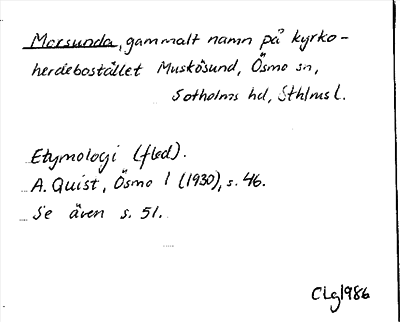 Morsunda, gammalt namn på kyrko-
herdebostället Muskösund, Ösmo sn,
Sotholms hd, Sthlms l.
Etymologi (fled).
A. Quist, Ösmo 1 (1930), s. 46.
Se även s. 51.
CLg 1986